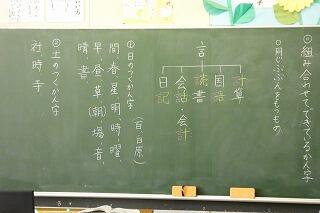 ◎組み合わせてできているかん字
○同じぶぶんをもつもの
言
計算
国語
読書
会話・会計
日記
①日のつくかん字(百・白・原)
間、春、星、明、時、曜、
早、昼、草(朝)、場、音、
晴、書
②土のつくかん字
社 時 寺